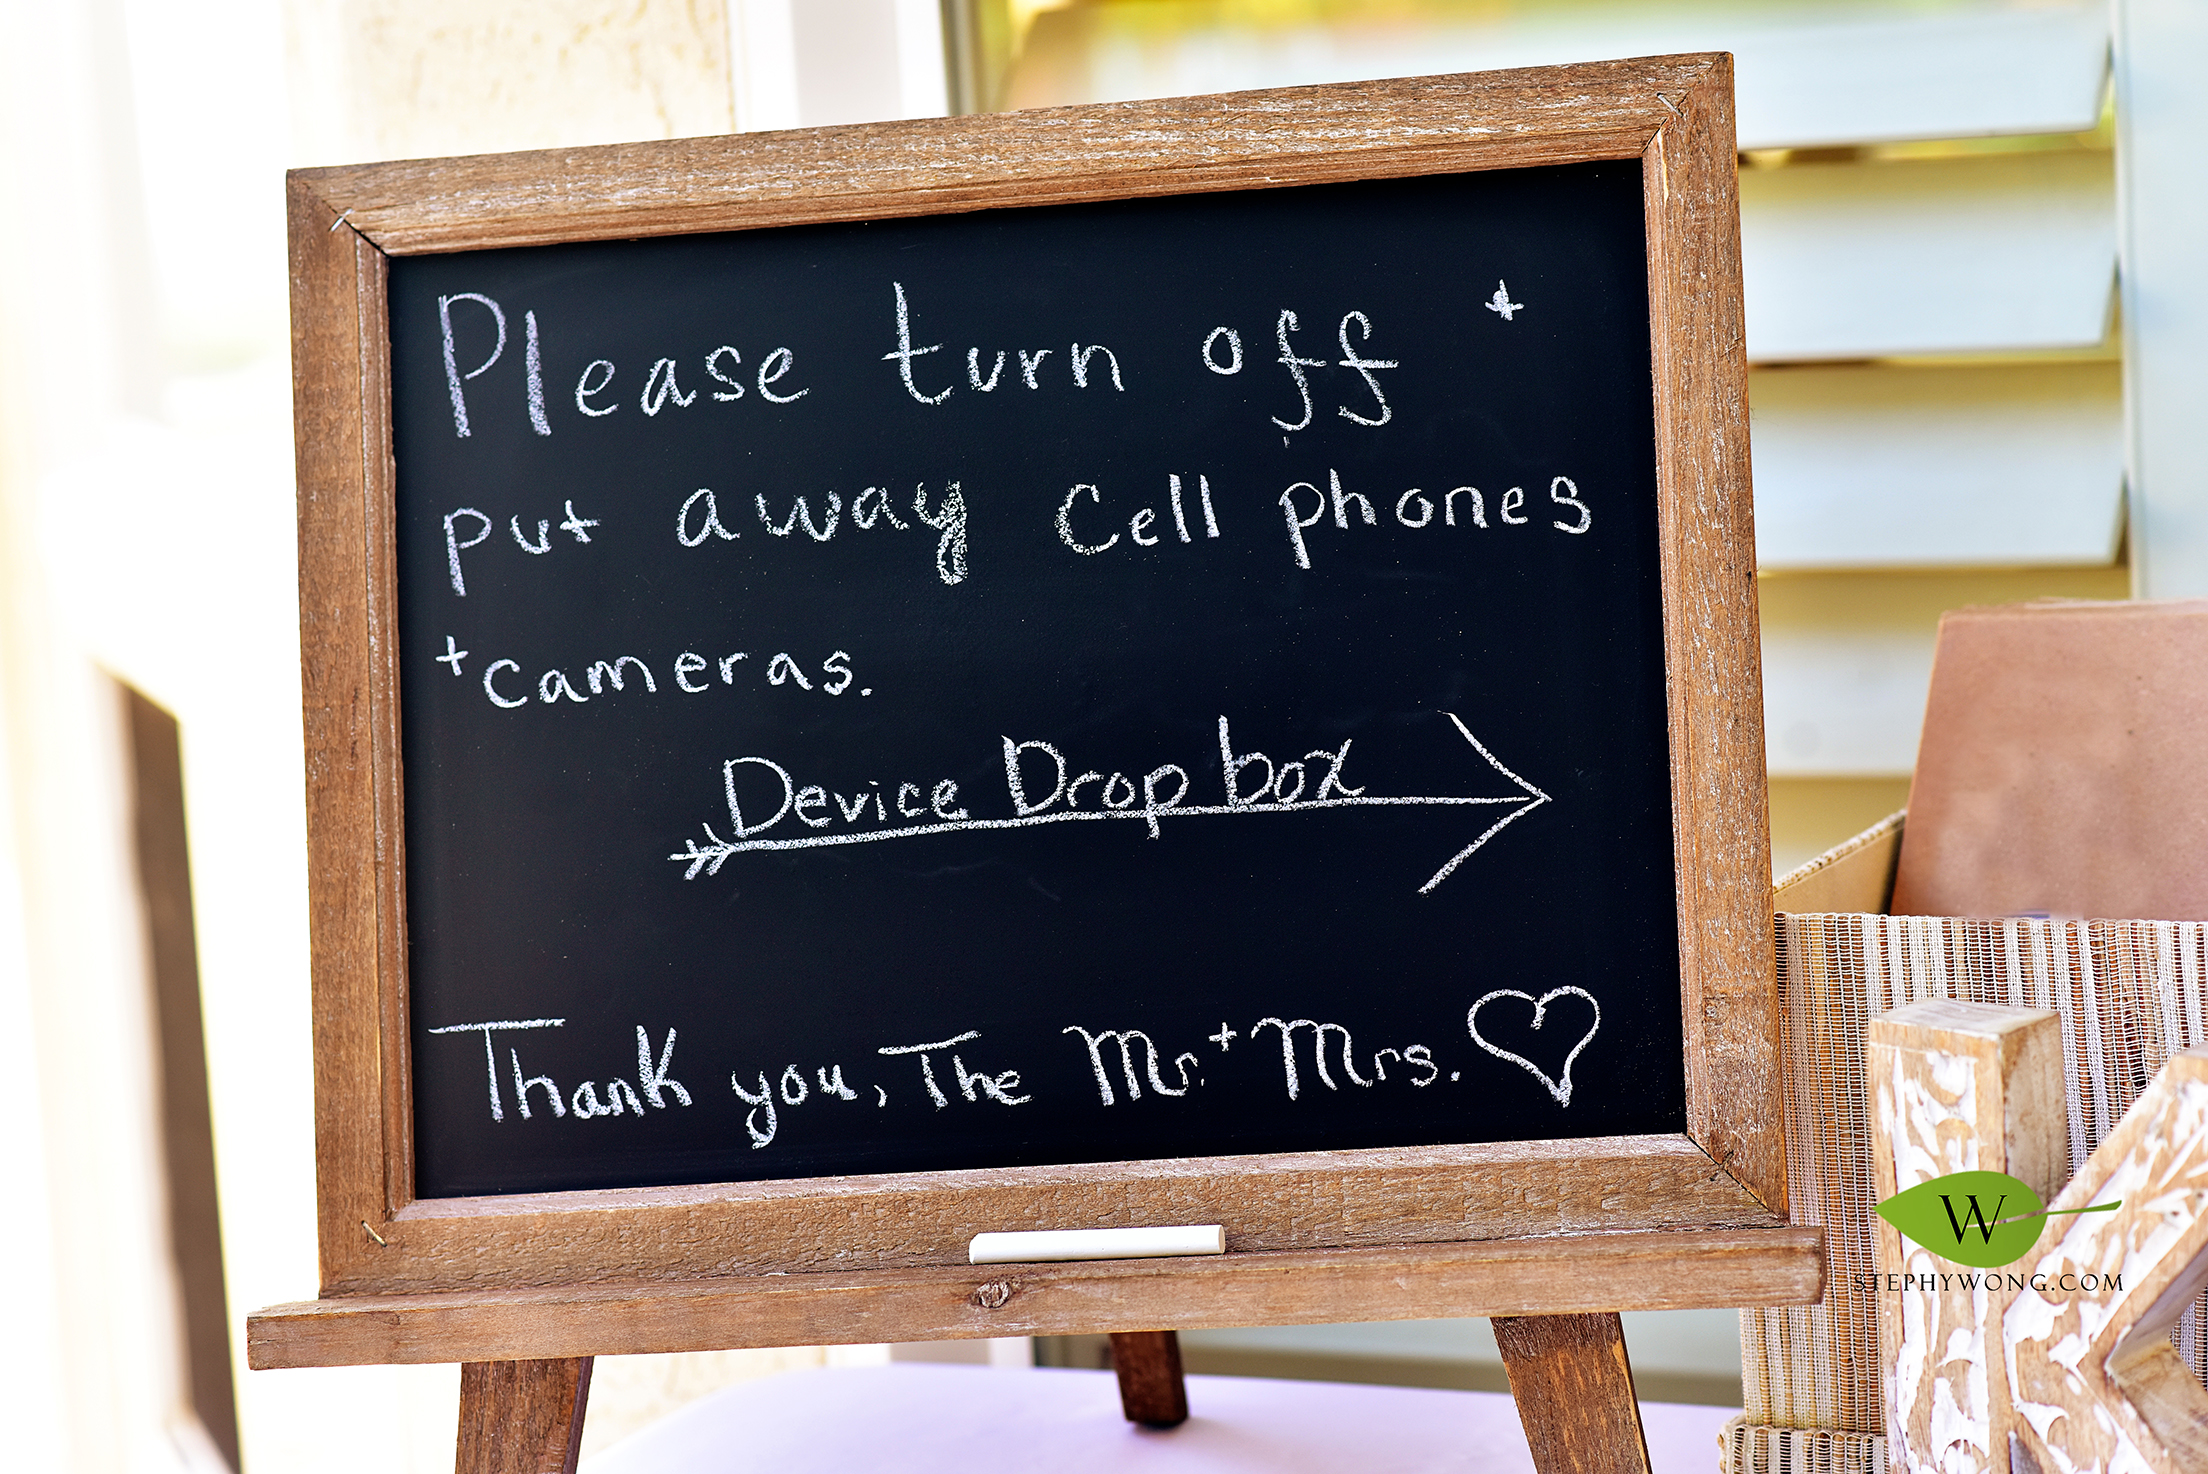 Please turn off +
put away cell phones
+cameras.
Device Drop box
Thank you, The Mr. + Mrs.
W
STEPHYWONG.COM